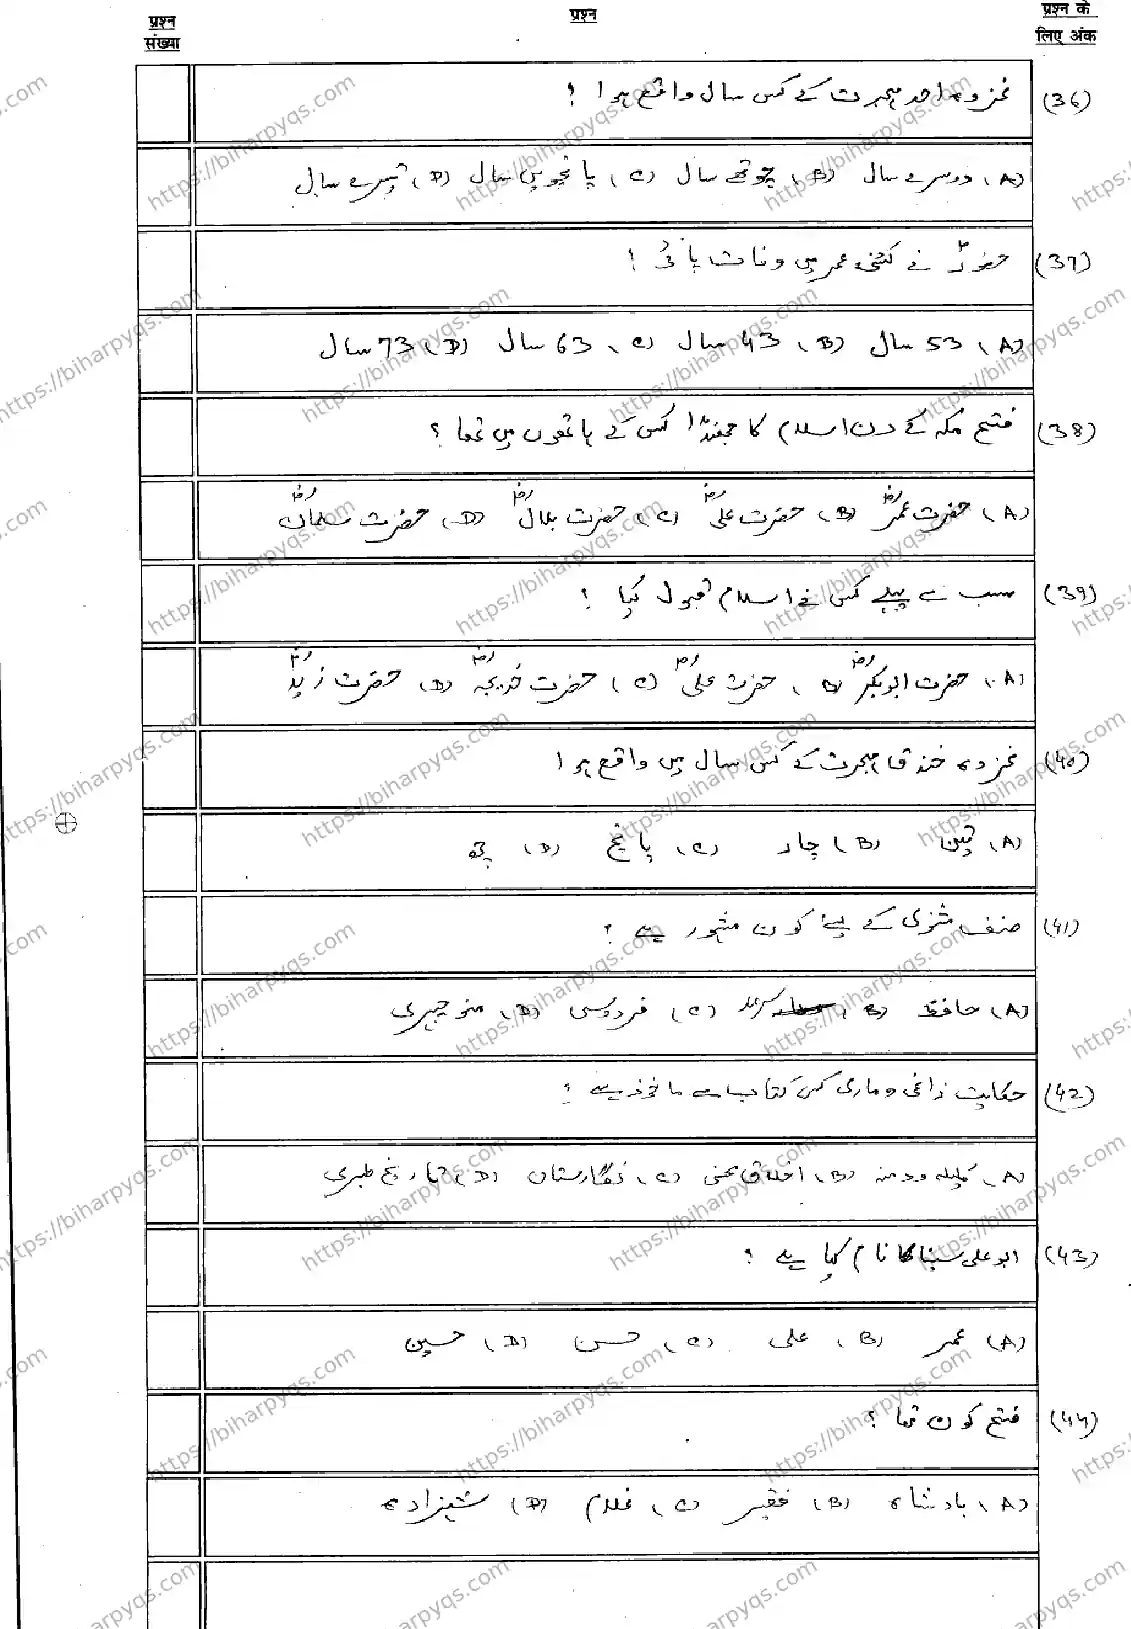 प्रश्न संख्या
प्रश्न
प्रश्न के लिए अंक
(36) غزوہ احد ہجرت کے کس سال واقع ہوا ؟
(A) دوسرے سال (B) چوتھے سال (C) پانچویں سال (D) تیسرے سال
(37) حضورؐ نے کتنی عمر میں وفات پائی ؟
(A) 53 سال (B) 43 سال (C) 63 سال (D) 73 سال
(38) فتح مکہ کے دن اسلام کا جھنڈا کس کے ہاتھوں میں تھا ؟
(A) حضرت عمرؓ (B) حضرت علیؓ (C) حضرت بلالؓ (D) حضرت سلمانؓ
(39) سب سے پہلے کس نے اسلام قبول کیا ؟
(A) حضرت ابوبکرؓ (B) حضرت علیؓ (C) حضرت خدیجہؓ (D) حضرت زیدؓ
(40) غزوہ خندق ہجرت کے کس سال میں واقع ہوا
(A) تین (B) چار (C) پانچ (D) چھ
(41) صنف مثنوی کے لیے کون مشہور ہے ؟
(A) حافظ (B) سرمد (C) فردوسی (D) منوچہری
(42) حکایت زاغی و ماری کس کتاب سے ماخوذ ہے ؟
(A) کلیلہ و دمنہ (B) اخلاق محسنی (C) نگارستان (D) تاریخ طبری
(43) ابو علی سینا کا نام کیا ہے ؟
(A) عمر (B) علی (C) حسن (D) حسین
(44) فتح کون تھا ؟
(A) بادشاہ (B) فقیر (C) غلام (D) شہزادہ
https://biharpyqs.com